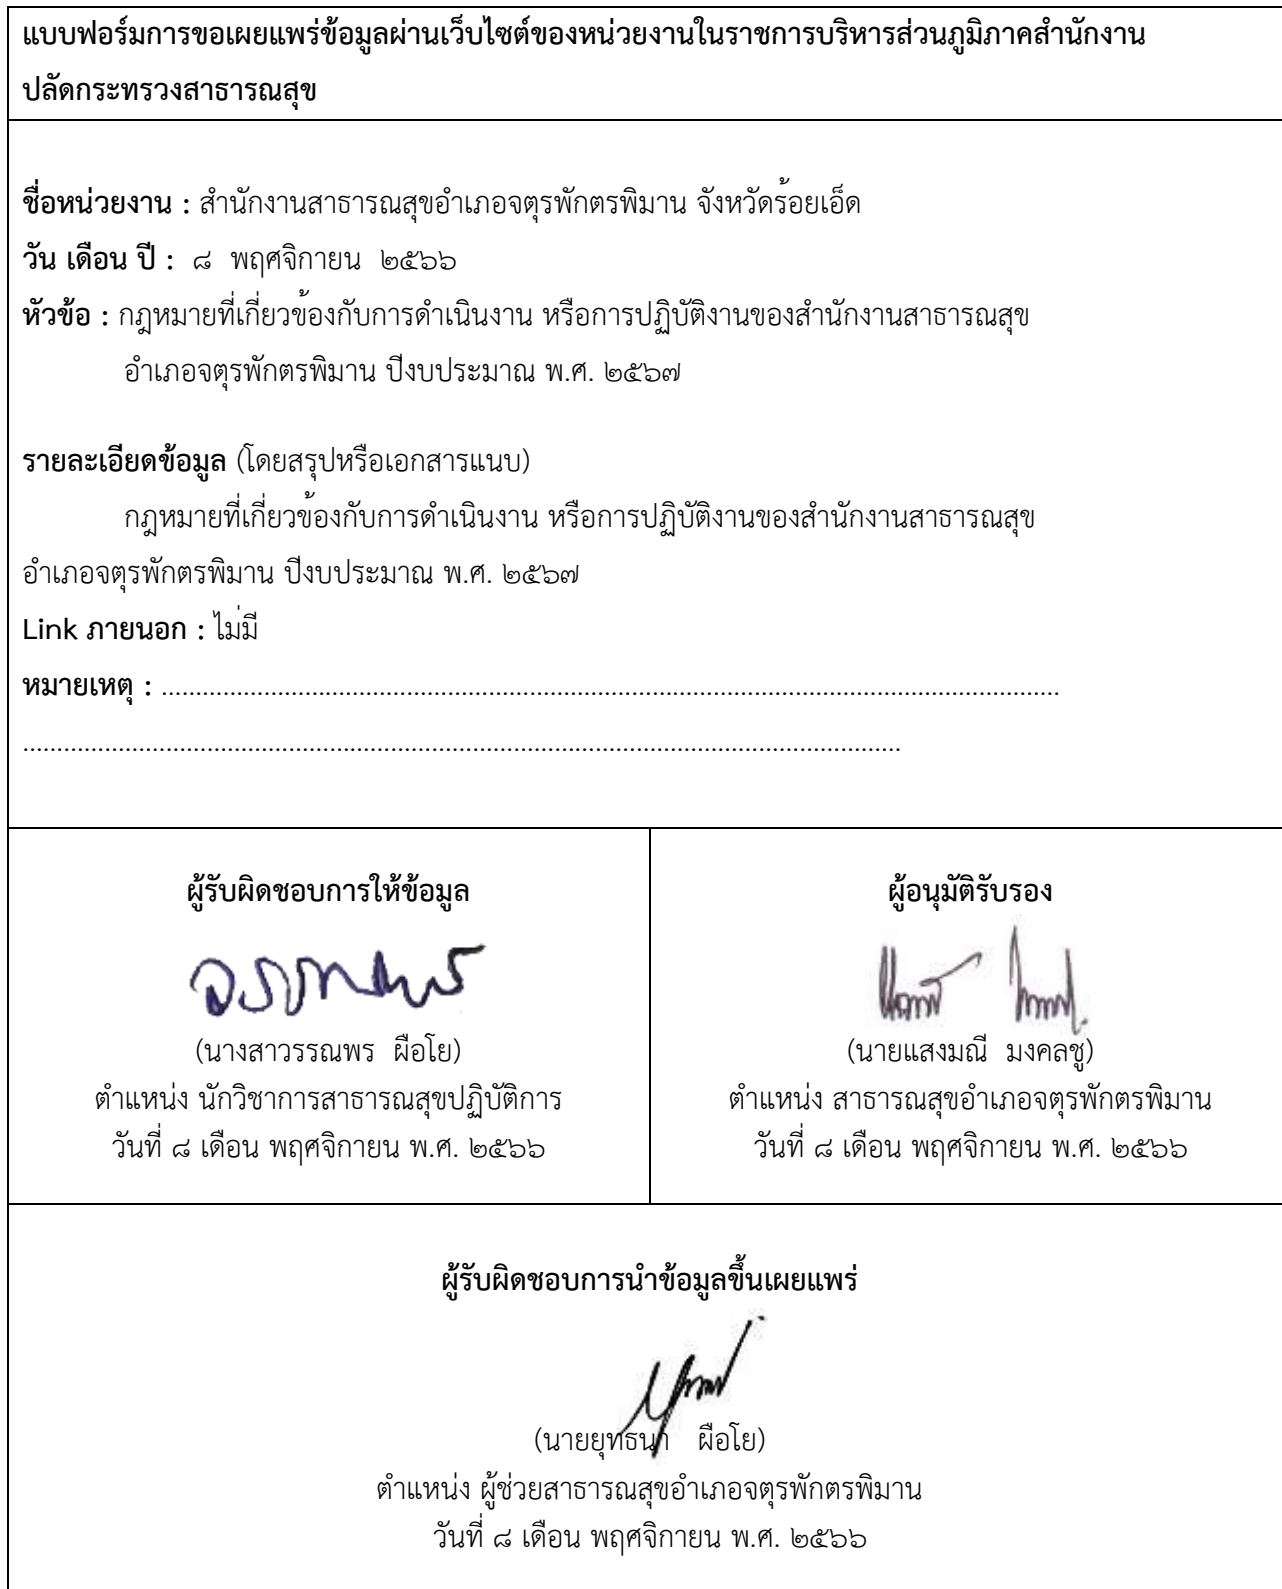 แบบฟอร์มการขอเผยแพร่ข้อมูลผ่านเว็บไซต์ของหน่วยงานในราชการบริหารส่วนภูมิภาคสำนักงาน
ปลัดกระทรวงสาธารณสุข
ชื่อหน่วยงาน : สำนักงานสาธารณสุขอำเภอจตุรพักตรพิมาน จังหวัดร้อยเอ็ด
วัน เดือน ปี : ๘ พฤศจิกายน ๒๕๖๖
หัวข้อ : กฎหมายที่เกี่ยวข้องกับการดำเนินงาน หรือการปฏิบัติงานของสำนักงานสาธารณสุข
อำเภอจตุรพักตรพิมาน ปีงบประมาณ พ.ศ. ๒๕๖๗
รายละเอียดข้อมูล (โดยสรุปหรือเอกสารแนบ)
กฎหมายที่เกี่ยวข้องกับการดำเนินงาน หรือการปฏิบัติงานของสำนักงานสาธารณสุข
อำเภอจตุรพักตรพิมาน ปีงบประมาณ พ.ศ. ๒๕๖๗
Link ภายนอก : ไม่มี
หมายเหตุ : ....................................................................................................................................
.................................................................................................................................
ผู้รับผิดชอบการให้ข้อมูล
(นางสาวรรณพร ผือโย)
ตำแหน่ง นักวิชาการสาธารณสุขปฏิบัติการ
วันที่ ๘ เดือน พฤศจิกายน พ.ศ. ๒๕๖๖
ผู้อนุมัติรับรอง
(นายแสงมณี มงคลชู)
ตำแหน่ง สาธารณสุขอำเภอจตุรพักตรพิมาน
วันที่ ๘ เดือน พฤศจิกายน พ.ศ. ๒๕๖๖
ผู้รับผิดชอบการนำข้อมูลขึ้นเผยแพร่
(นายยุทธนา ผือโย)
ตำแหน่ง ผู้ช่วยสาธารณสุขอำเภอจตุรพักตรพิมาน
วันที่ ๘ เดือน พฤศจิกายน พ.ศ. ๒๕๖๖